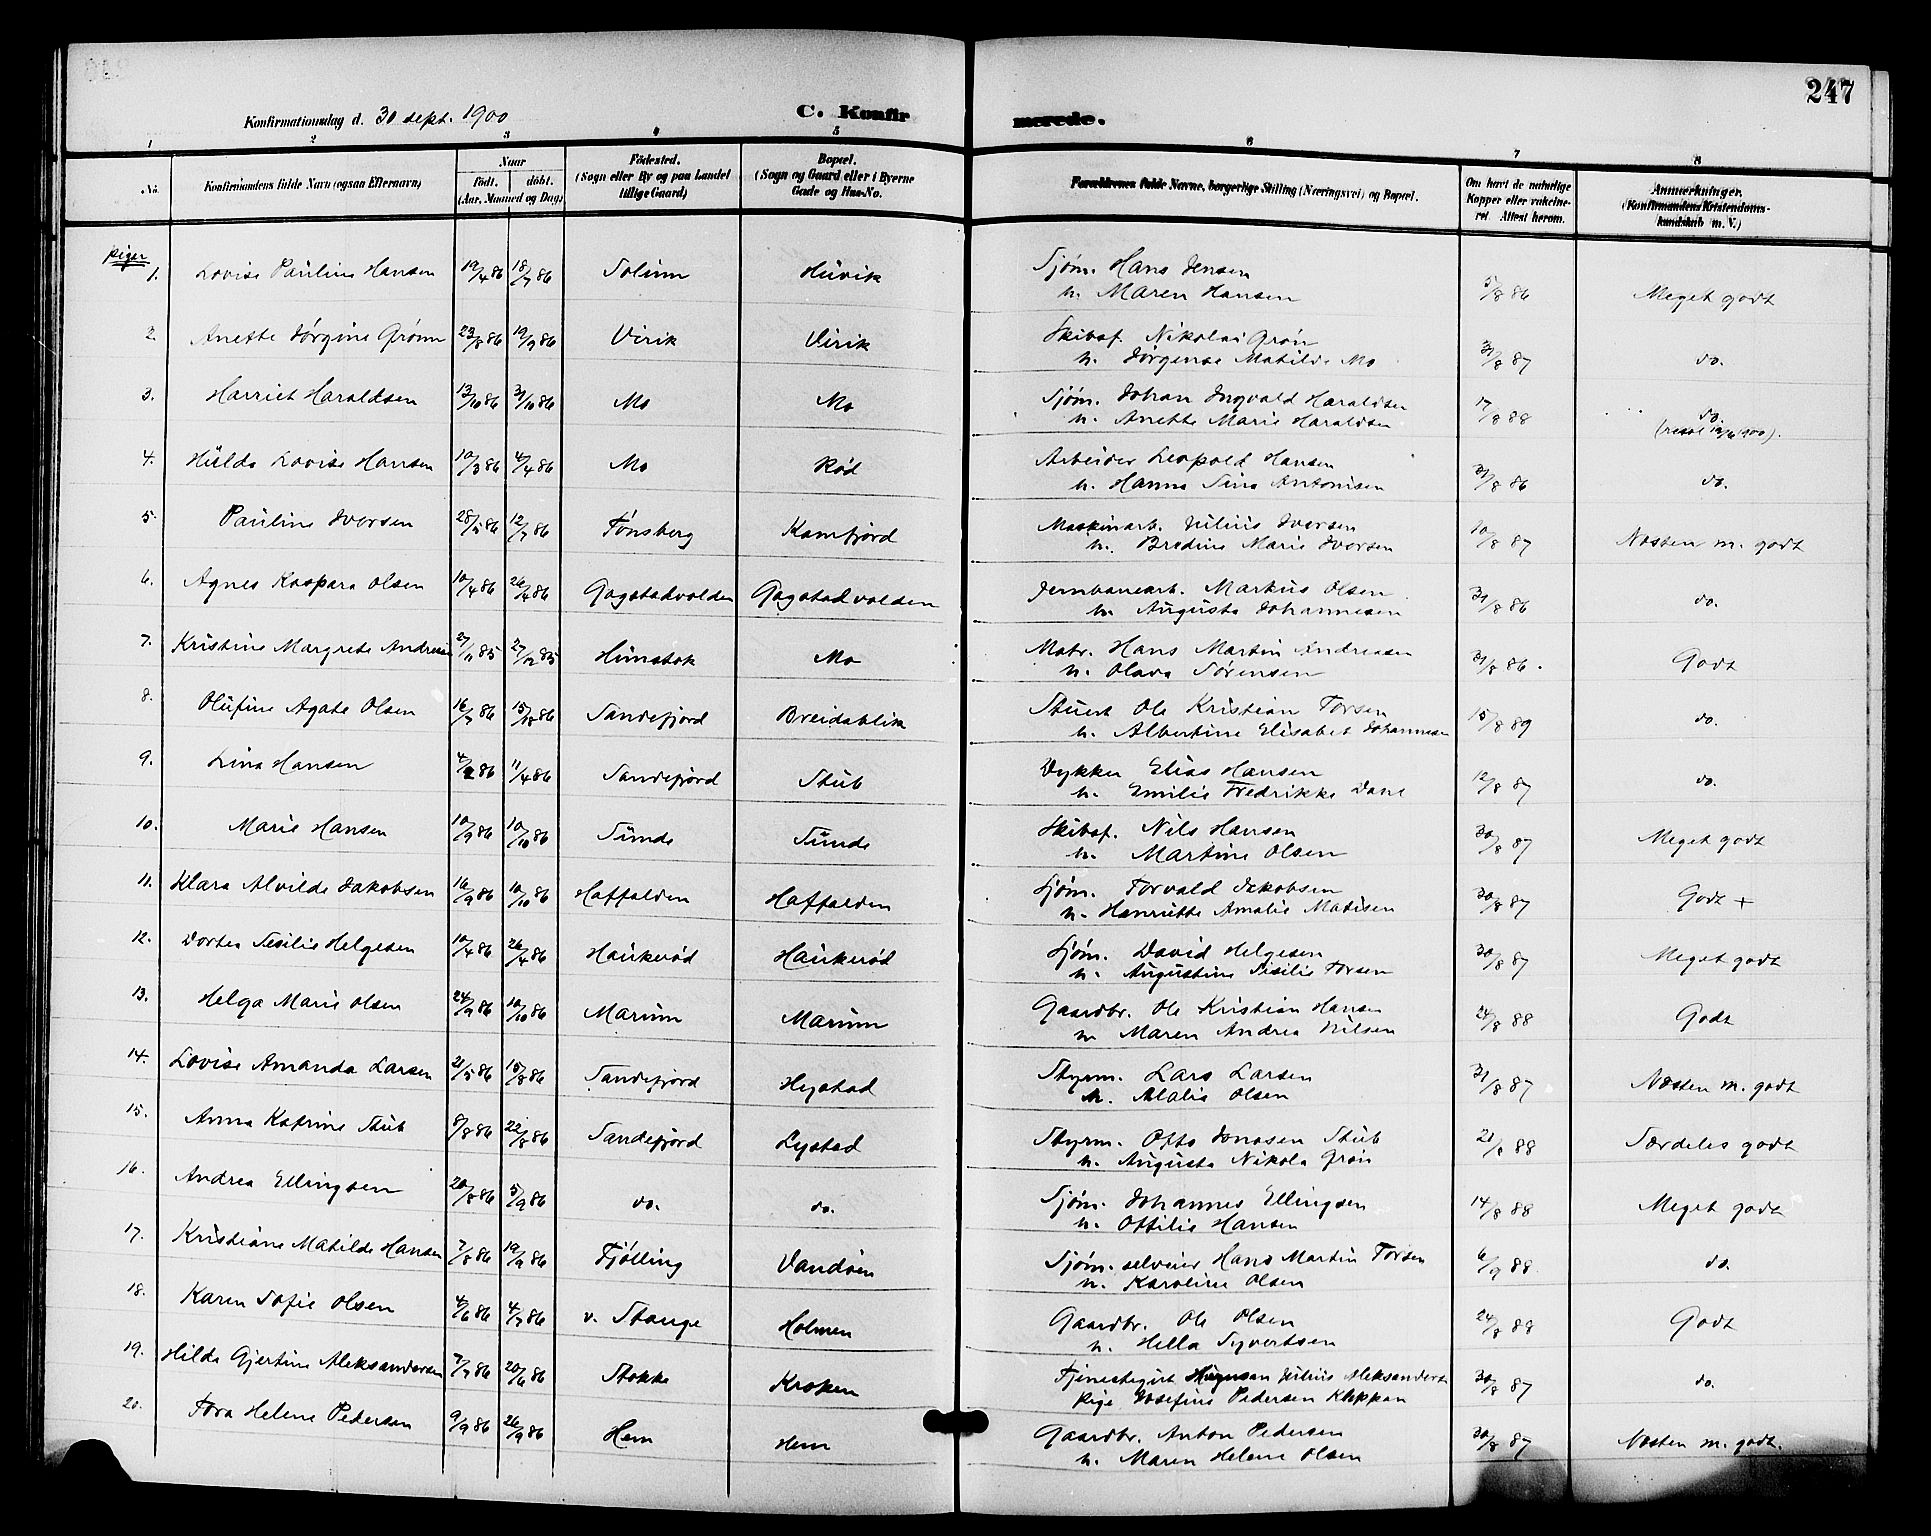 247
Konfirmationsdag d. 30 sept. 1900
C. Konfirmerede.
1 2 3 4 5 6 7 8
No.
Konfirmandens fulde Navn (ogsaa Efternavn)
Naar
født. døbt.
(Aar, Maaned og Dag)
Fødested.
(Sogn eller By og paa Landet
tillige Gaard)
Bopæl.
(Sogn og Gaard eller i Byerne
Gade og Hus-No.
Forældrenes fulde Navne, borgerlige Stilling (Næringsvei) og Bopæl.
Om havt de naturlige
Kopper eller vakcine-
ret. Attest herom.
Anmærkninger.
(Konfirmandens Kristendoms-
kundskab m. V.)
piger
1. Lovise Pauline Hansen 19/4 86 18/7 86 Solum Huvik Sjøm. Hans Jensen 5/8 86 Meget godt
h. Maren Hansen
2. Anette Jørgine Grønn 22/8 86 19/9 86 Virik Virik Skibsf. Nikolai Grøn 31/8 87 do.
h. Jørgense Matilde Mo
3. Harriet Haraldsen 13/10 86 31/10 86 Mo Mo Sjøm. Johan Ingvald Haraldsen 17/8 88 do.
h. Anette Marie Haraldsen
4. Hulda Lovise Hansen 10/3 86 4/4 86 Mo Rød Arbeider Leopold Hansen 31/8 86 do.
h. Hanna Sina Antonisen
5. Pauline Iversen 28/5 86 12/7 86 Tønsberg Kamfjord Maskinarb. Julius Iversen 10/8 87 Næsten m. godt
h. Bredine Marie Iversen
6. Agnes Kaspara Olsen 10/4 86 26/4 86 Gogstadvolden Gogstadvolden Jernbanearb. Markus Olsen 31/8 86 do.
h. Augusta Johannesen
7. Kristine Margrete Andreasen 27/11 85 27/12 85 Himstok Mo Matr. Hans Martin Andreasen 31/8 86. Godt
h. Olava Sørensen
8. Olufine Agate Olsen 16/7 86 15/8 86 Sandefjord Breidablik Stuert Ole Kristian Torsen 15/8 89 do.
h. Albertine Elisabet Johannesen
9. Lina Hansen 4/2 86 11/4 86 Sandefjord Stub Dykker Elias Hansen 12/8 87 do.
h. Emilie Fredrikke Dane
10. Marie Hansen 10/9 86 10/10 86 Sunde Sunde Skibsf. Nils Hansen 30/8 87 Meget godt
h. Martine Olsen
11. Klara Alvilde Jakobsen 16/9 86 10/10 86 Haffalden Haffalden Sjøm. Torvald Jakobsen 30/8 87 Godt +
h. Henriette Amalie Matisen
12. Dortea Sesilie Helgesen 10/4 86 26/4 86 Haukerød Haukerød Sjøm. David Helgesen 30/8 87 Meget godt
h. Augustine Sisilie Torsen
13. Helga Marie Olsen 24/9 86 10/10 86 Marum Marum Gaardbr. Ole Kristian Hansen 24/8 88 Godt
h. Maren Andrea Nilsen
14. Lovise Amanda Larsen 21/5 86 15/8 86 Sandefjord Hystad Styrm. Lars Larsen 31/8 87 Næsten m. godt
h. Alalie Olsen
15. Anna Katrine Stub 8/8 86 22/8 86 Sandefjord Lystad Styrm. Otto Jonasen Stub 21/8 88 Særdeles godt
h. Augusta Nikola Grøn
16. Andrea Ellingsen 20/8 86 5/9 86 do. do. Sjøm. Johannes Ellingsen 14/8 88 Meget godt
h. Otilie Hansen
17. Kristiane Matilde Hansen 7/8 86 19/9 86 Fjølling Vandøen Sjøm. selveier Hans Martin Torsen 6/9 88 do.
h. Karoline Olsen
18. Karen Sofie Olsen 4/6 86 4/7 86 v. Stange Holmen Gaardbr. Ole Olsen 24/8 88 Godt
h. Hella Syvertsen
19. Hilda Gjertine Aleksandersen 7/7 86 20/6 86 Stokke Kroken Tjenestegut Julius Aleksandersen 30/8 87 do.
pige Josefine Pedersen Kloppan
20. Tora Helene Pedersen 9/9 86 26/9 86 Hem Hem Gaardbr. Anton Pedersen 30/8 87 Næsten m. godt.
h. Maren Helene Olsen